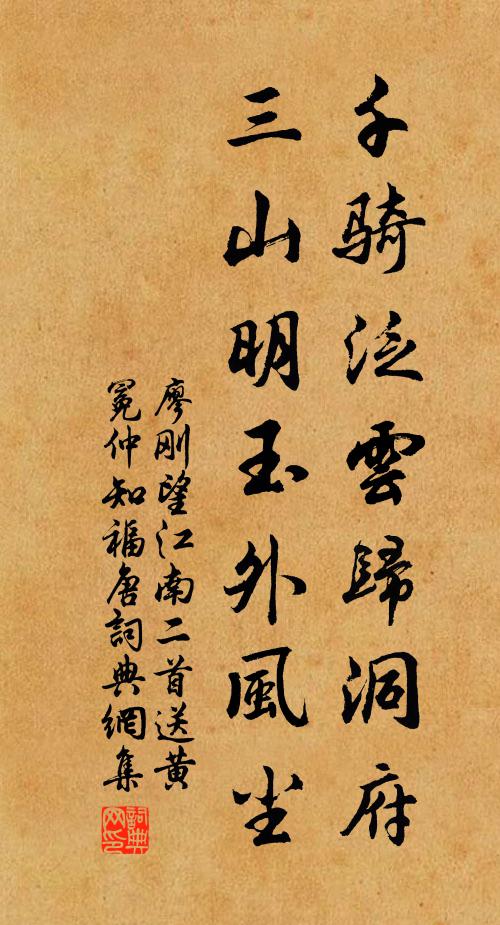 千骑泛雲歸洞府
三山明玉外風尘
廖刚望江南二首送黄
冕仲知福唐詞典網集
詞典网印